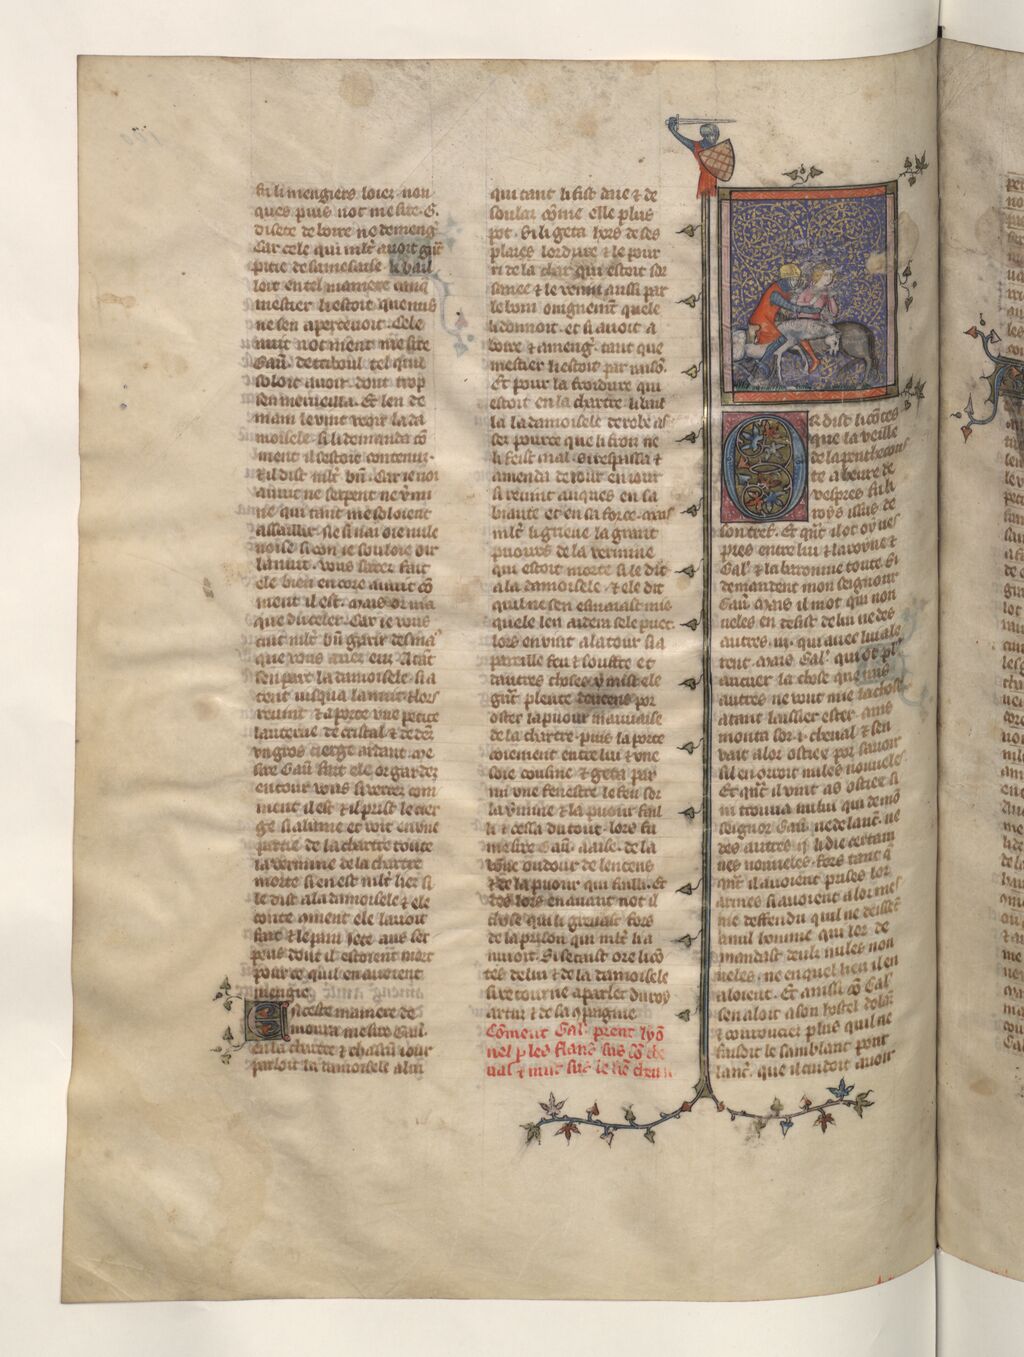 fu li mengiers loier non
ques puis not mesire .G.
disete de boire ne de meng̅
Car cele qui ml̅t auoit gr̅t
pitie de sa mesaise li bail
loit en tel maniere quanq̅
mestier li estoit que nus
ne sen aperceuoit. Cele
nuit not mient mesire
Gau̅. de taboul tel quil
soloit auoir dont trop
sen merueilla. Et len de
main le vint veoir la da
moisele si li demanda co̅
ment il sestoit contenu.
Et il dist ml̅t bn̅. Car ie noi
anuit ne serpent ne v̅mi
ne qui tant me soloient
assaillir. Ne si nai oie nule
noise si con ie souloie oir
la nuit. Vous sauez fait
ele bien encore anuit co̅
ment il est. mais or ma
que di celer. Car ie vous
cuit ml̅t bn̅ garir des ma
que vous auez eu. A ta̅t
sen part la damoisele. si a
tent iusqua la nuit. Lors
reuint & aporte vne petite
lanterne de cristal & dede̅z
vn gros cierge ardant. me
sire Gau̅ fait ele or gardez
entour vous si verrez com
ment il est & il prist le cier
ge si alume et voit en vne
partie de la chartre toute
la vermine de la chartre
morte si en est ml̅t liez si
le dist a la damoisele & ele
conte coment ele lauoit
fait & le pain gete aus ser
pens dont il estoient mort
pour ce quil en auoient
mengie.
En ceste maniere de
moura mesire Gau̅.
en la chartre & chascun iour
parloit la damoisele a lui
qui tant li fist daie & de
soulaz co̅me elle plus
pot. Si li geta hors de ses
plaies lordure & le pour
ri de la char qui estoit sor
sanee & le venin aussi par
le bon oignement quele
li donnoit. et si auoit a
boire & a meng̅. tant que
mestier li estoit par raiso̅.
Et pour la froidure qui
estoit en la chartre li bail
la la damoisele de robe as
sez pource que li froiz ne
li feist mal. Si respassa &
amenda de iour en iour
si reuint auques en sa
biaute et en sa force. mais
ml̅t li grieue la grant
puours de la vermine
qui estoit morte si le dit
a la damoisele. & ele dit
quil ne sen esmaiast mie
quele len aidera sele puet.
lors en vint a la tour si a
pareille feu & souffre et
dautres choses. & mist ele
gr̅t plente dencens por
oster la puour mauuaise
de la chartre. puis la porte
coiement entre lui & vne
soie cousine & geta par
mi vne fenestre le feu sor
la v̅mine & la puour fail
li & cessa du tout. lors fu
mesire Gau̅. aaise. de la
bo̅ne oudour de lencens
& de la puour qui failli. Et
des lors en auant not il
chose qui li greuast fors
de la prison qui ml̅t li a
nuioit. Si se taist ore li co̅
tes de lui & de la damoisele
si retourne a parler du roy
artu & de sa ꝯpaignie
Co̅ment Gal'. prent lyo̅
nel p les flans sus so̅ che
ual & mist sus le sie̅ deua̅
Or dist li co̅tes
que la veille
de la penthecous
te a heure de
vespres fu li
roys issus de
son tref. Et qn̅t il ot oy ves
pres entre lui & la royne &
Gal'. & la baronnie toute. Si
demandent mon seignour
Gau̅. mais il not qui non
ueles en desist de lui ne des
autres .iij. qui auec lui ale
rent. mais Gal'. qui ot pl'
auctier la chose que nus
autres ne vout mie la chose
atant laissier ester. ains
monta sor .i. cheual & sen
vait a lor ostiex por sauoir
sil en orroit nules nouueles.
Et qn̅t il vint as ostiex si
ni trouua nului qui de mo̅
seignor Gau̅. ne de lanc̅. ne
des autres .ij. li die certain
nes nouueles. fors tant q̅
qn̅t il auoient prises lor
armes si auoient a lor mes
nie deffendu quil ne deissent
a nul homme qui lor de
mandast deulz nules nou
ueles. ne en quel lieu il en
aloient. Et ainsi co̅ Gal'.
sen aloit a son hostel dolaz
& courouciez plus quil ne
faisoit le samblant pour
lanc̅. que il cuidoit auoir